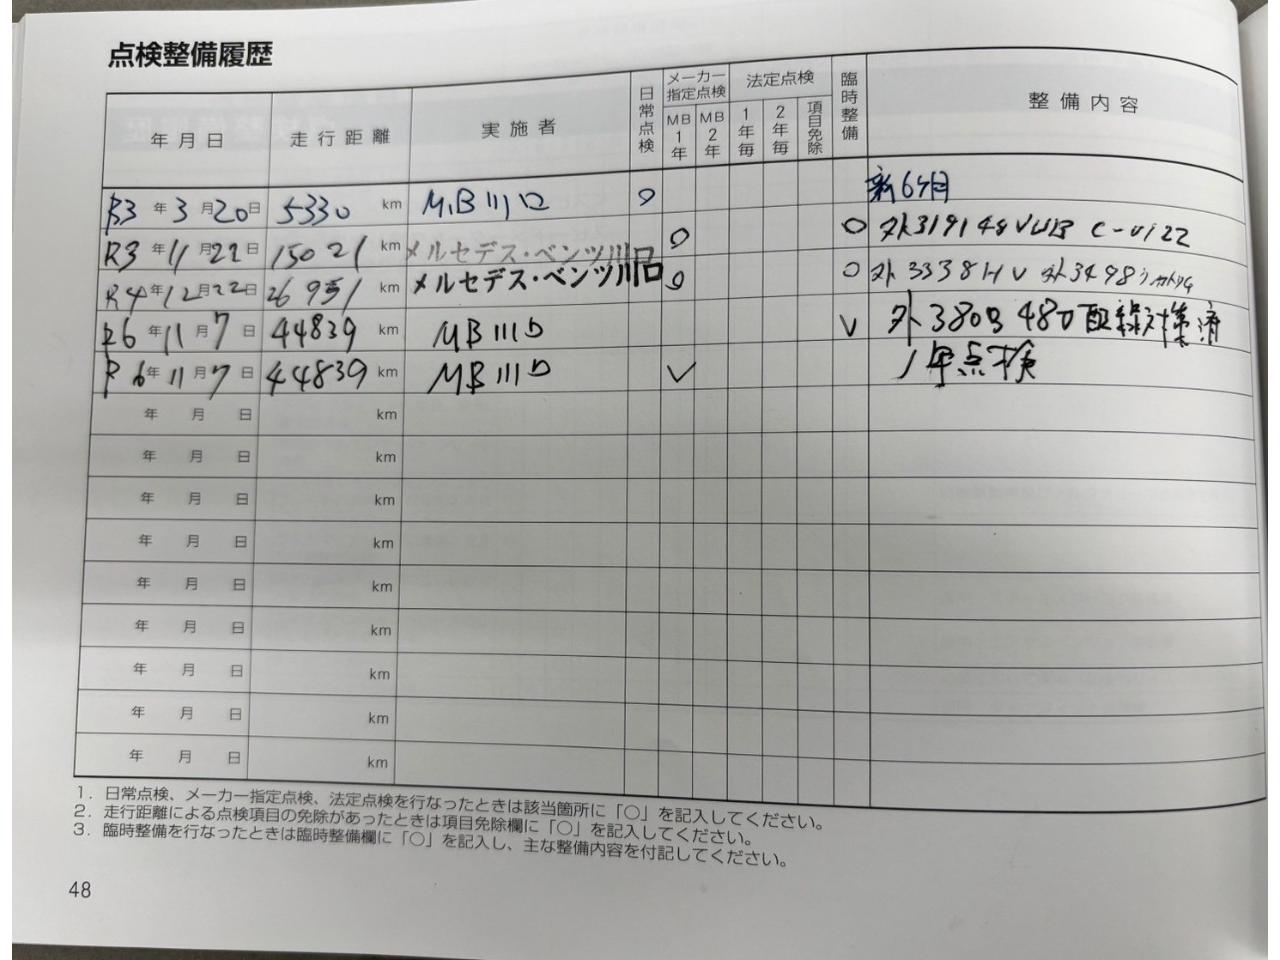 点検整備履歴
年月日 走行距離 実施者 日常点検 メーカー指定点検 MB1年 MB2年 法定点検 1年毎 2年毎 項目免除 臨時整備 整備内容
R3年3月20日 5330km MB川口 ○ 新6ヶ月
R3年11月22日 15021km メルセデス・ベンツ川口 ○ ○ 外319148V
R4年12月22日 26951km メルセデス・ベンツ川口 ○ ○ 外3338HV 外3498
R6年11月7日 44839km MB川口 V 外380848V配線対策済
R6年11月7日 44839km MB川口 V 1年点検
年 月 日 km
年 月 日 km
年 月 日 km
年 月 日 km
年 月 日 km
年 月 日 km
年 月 日 km
年 月 日 km
年 月 日 km
1. 日常点検、メーカー指定点検、法定点検を行なったときは該当箇所に「○」を記入してください。
2. 走行距離による点検項目の免除があったときは項目免除欄に「○」を記入してください。
3. 臨時整備を行なったときは臨時整備欄に「○」を記入し、主な整備内容を付記してください。
48